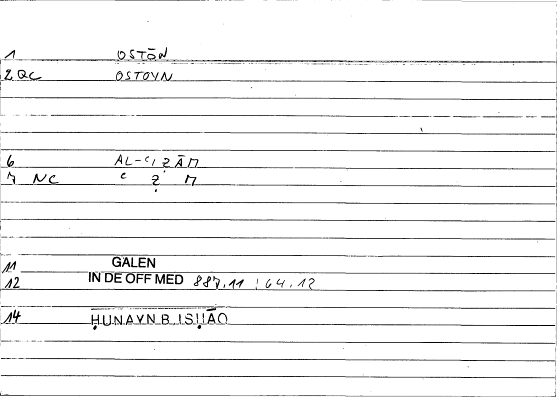 1 OSTŌN
2 QC OSTOYN
6 AL-ʿIẒĀM
7 NC ʿ Ẓ M
11 GALEN
12 IN DE OFF MED 887,11 : 64.12
14 ḤUNAYN B. ISḤĀQ